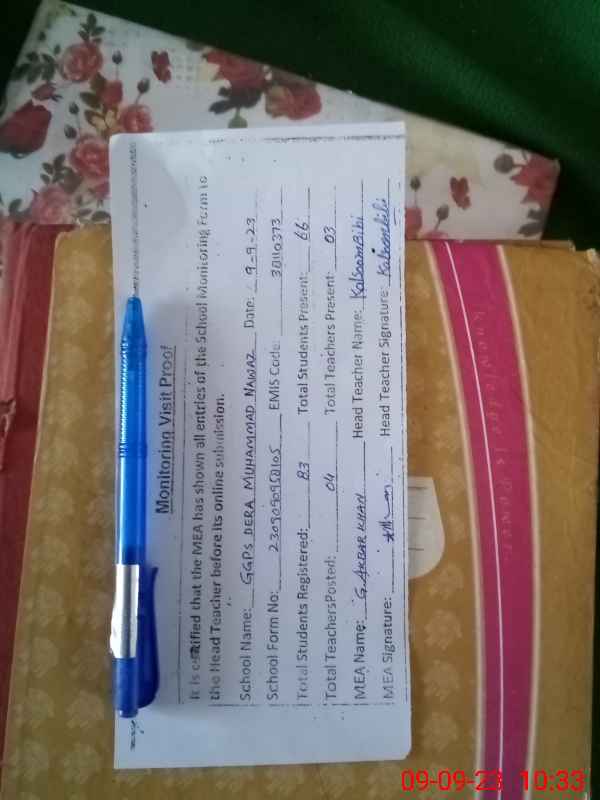 Monitoring Visit Proof
It is certified that the MEA has shown all entries of the School Monitoring Form to
the Head Teacher before its online submission.
School Name: GGPS DERA MUHAMMAD NAWAZ Date: 9-9-23
School Form No: EMIS Code: 38110373
Total Students Registered: 83 Total Students Present: 66
Total TeachersPosted: 04 Total Teachers Present: 03
MEA Name: G. AKBAR KHAN Head Teacher Name: KalsoomBibi
MEA Signature: Head Teacher Signature: Kalsoombibi
Knowledge is Power
09-09-23 10:33